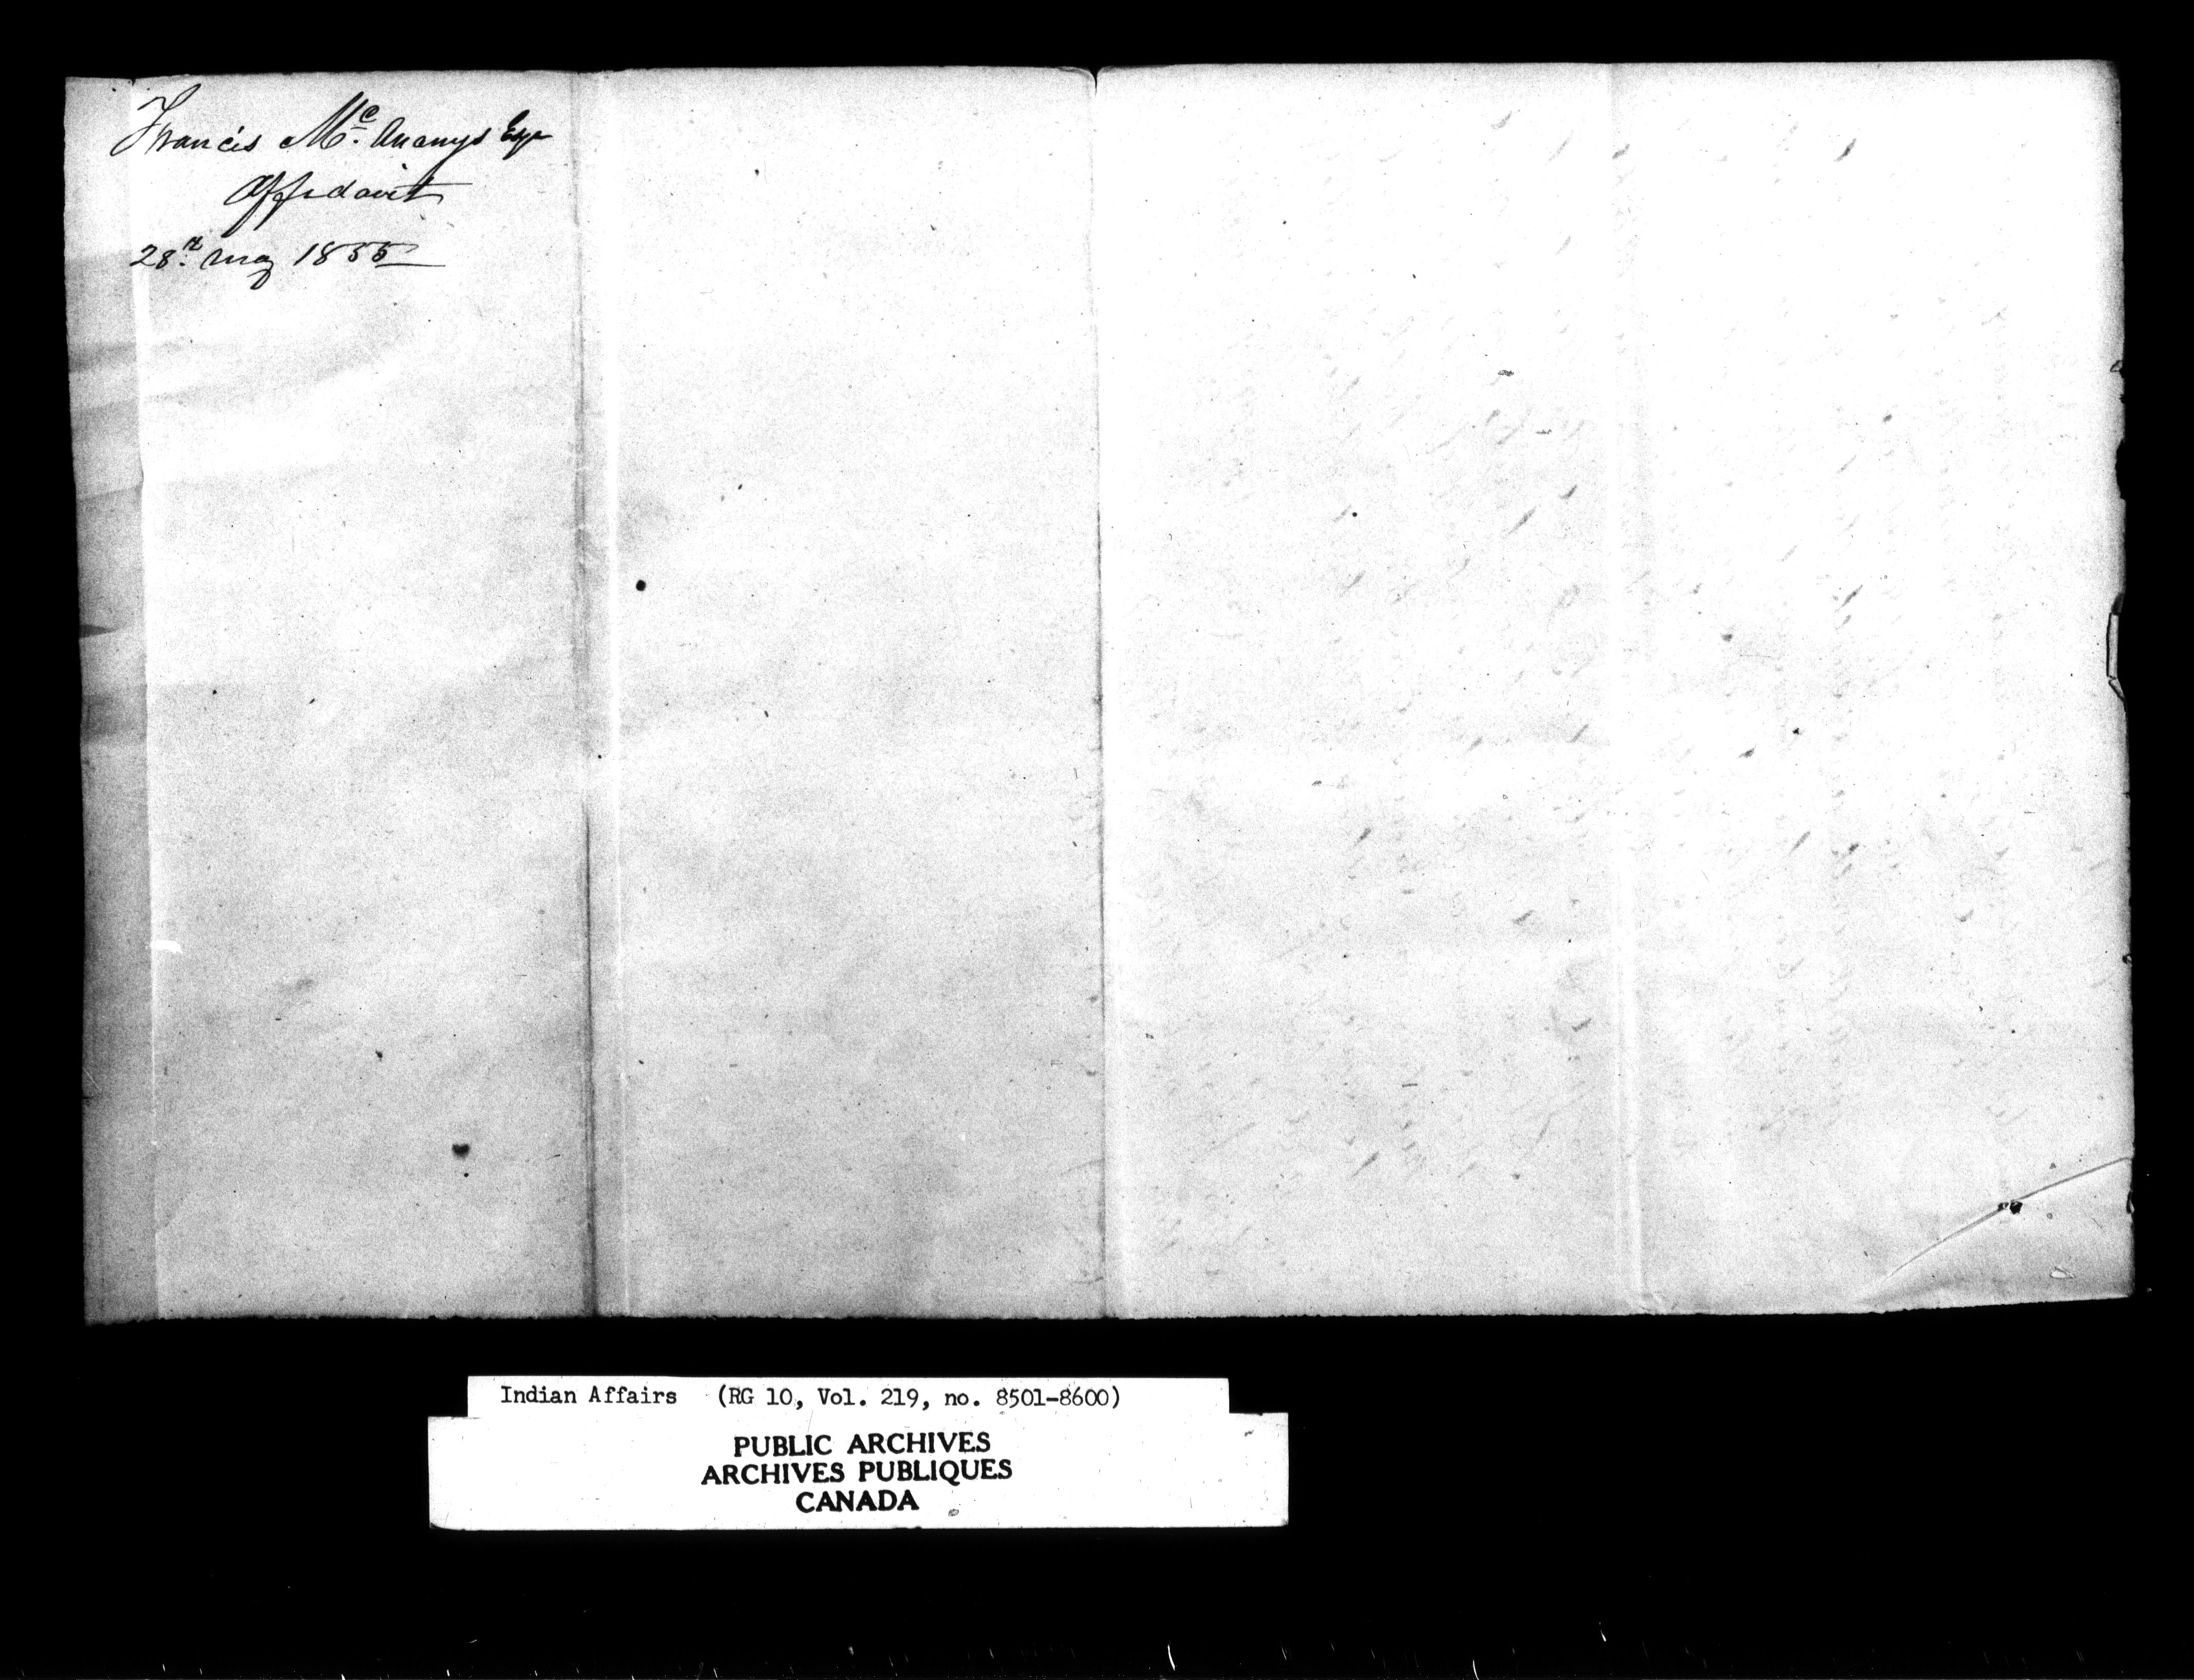 Francis Mc. Ananys Esqr
Affidavit
28th May 1855
Indian Affairs (RG 10, Vol. 219, no. 8501-8600)
PUBLIC ARCHIVES
ARCHIVES PUBLIQUES
CANADA